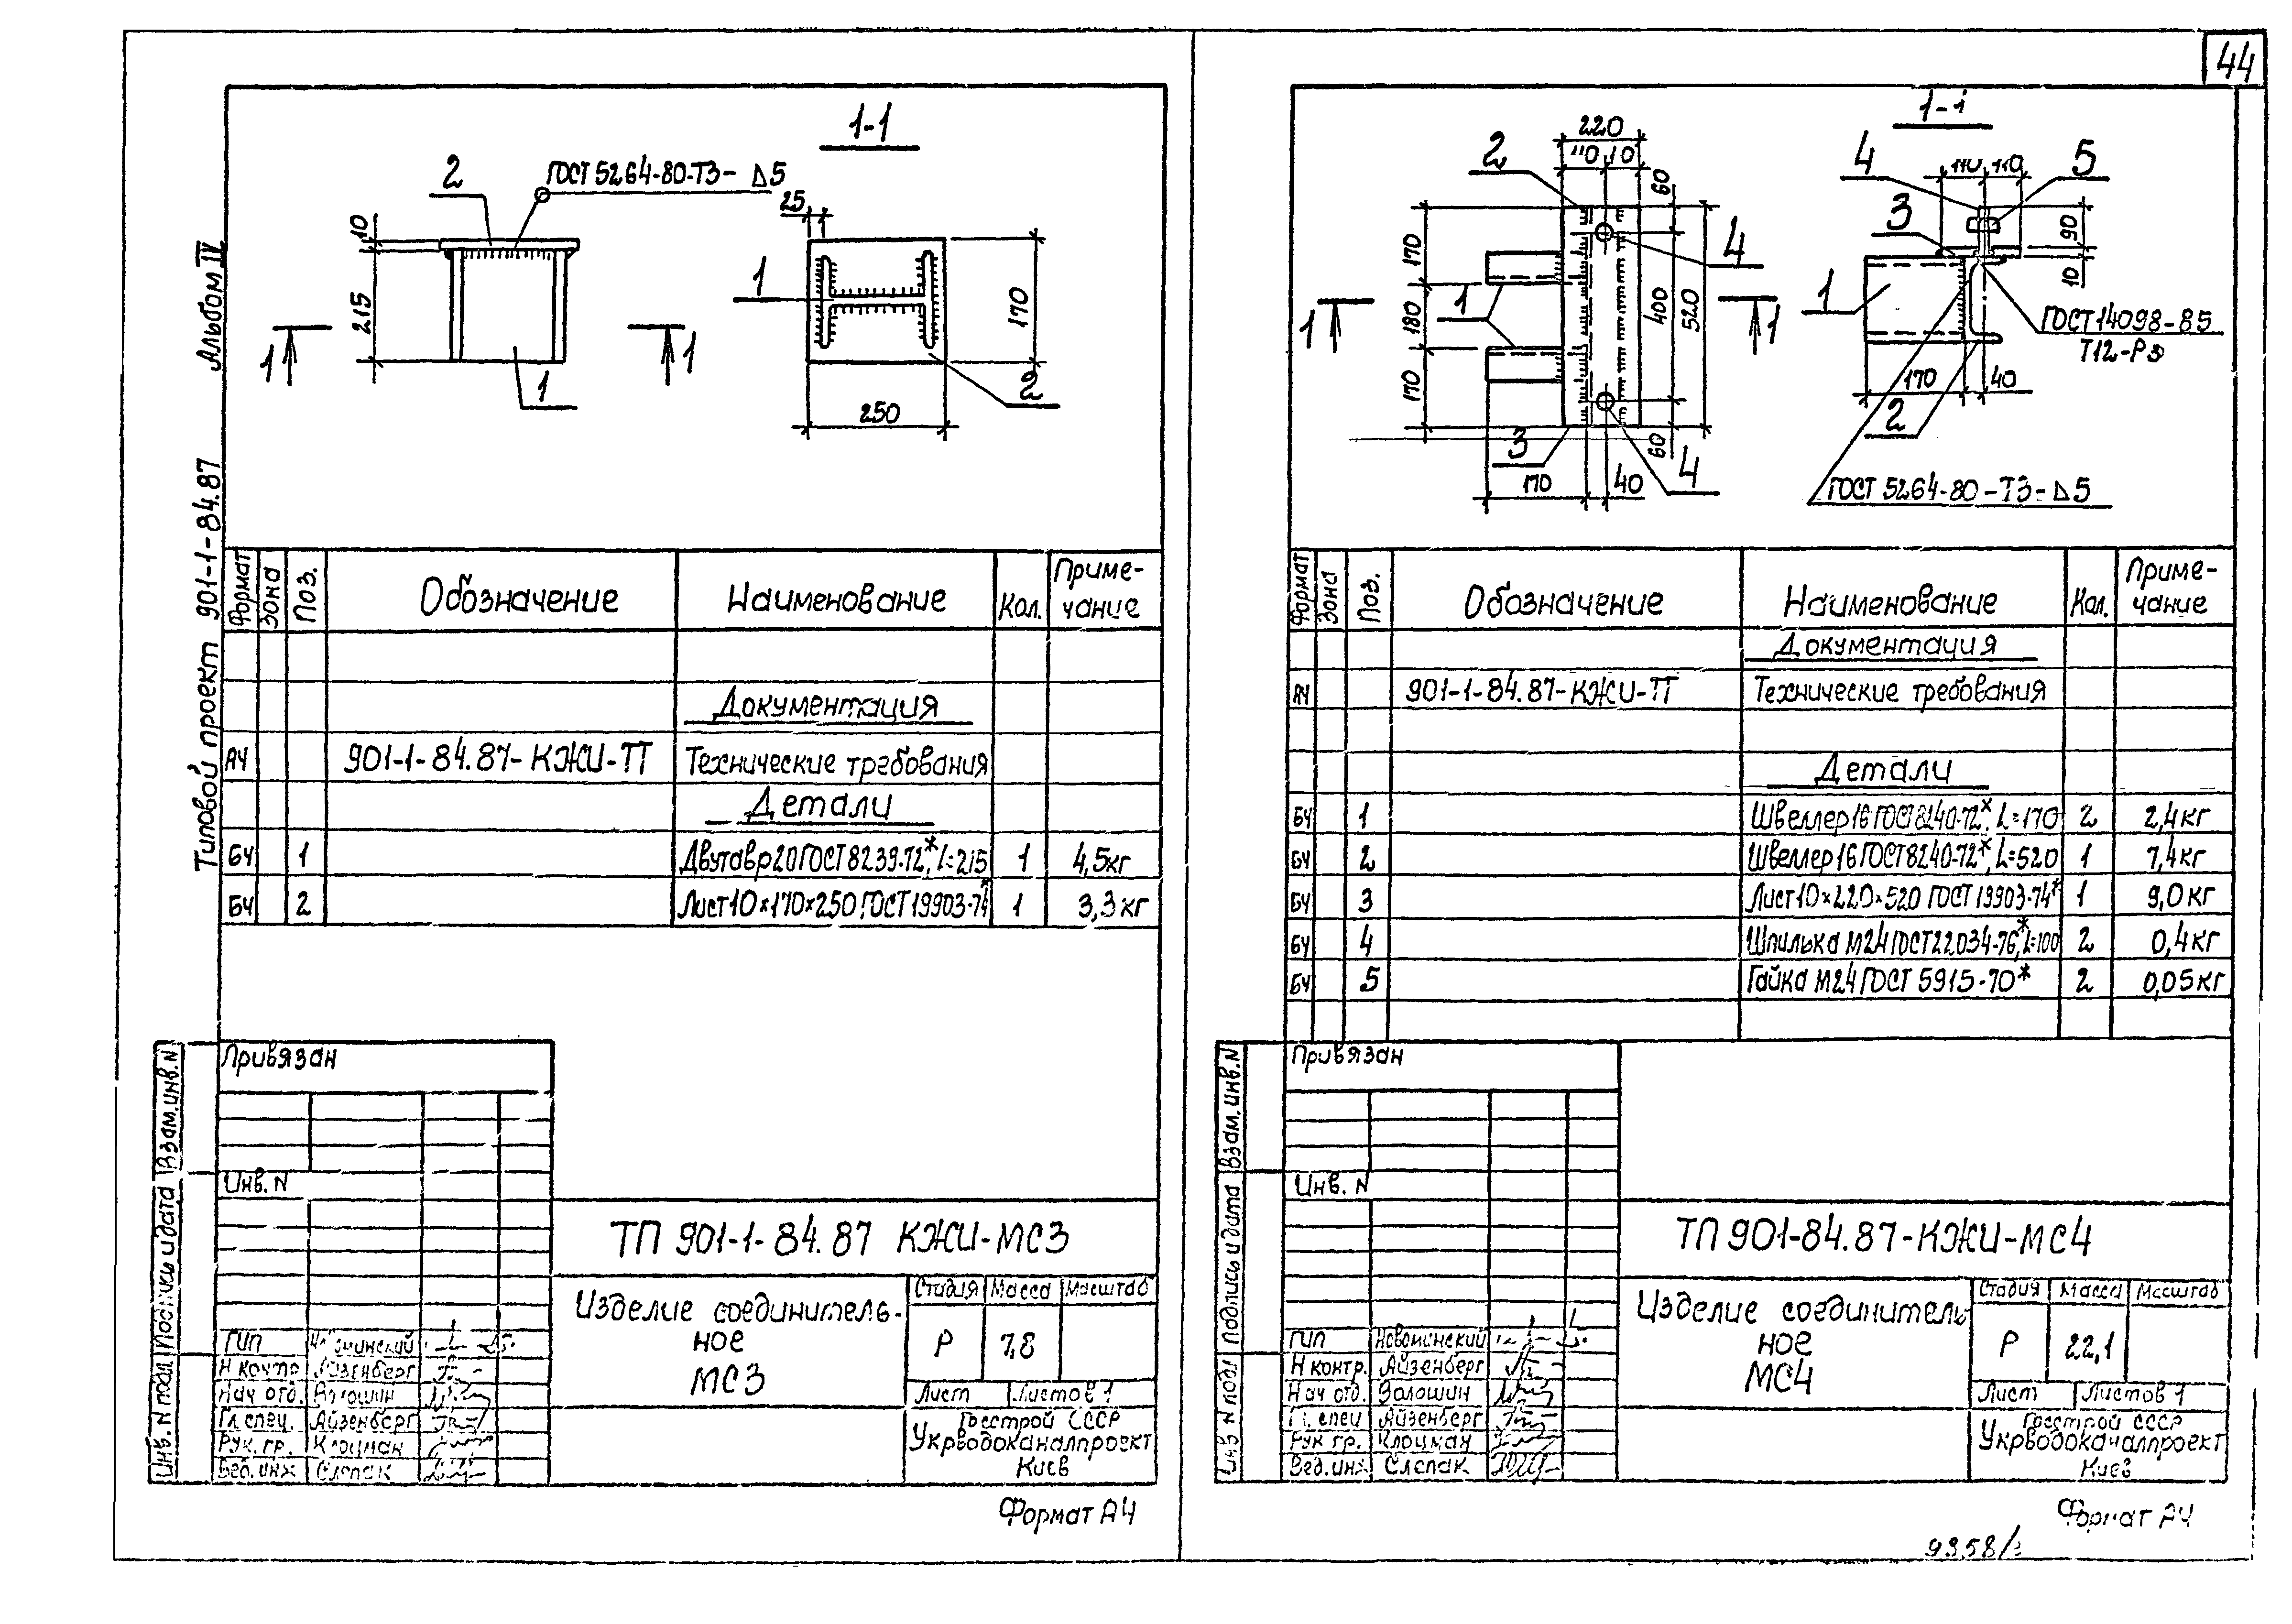 44
Альбом IV
Типовой проект 901-1-84.87
1-1
2
ГОСТ 5264-80-Т3-Δ5
10
215
1
1
1
25
1
170
250
2
Формат
Зона
Поз.
Обозначение
Наименование
Кол.
Приме-
чание
Документация
А4 901-1-84.87-КЖИ-ТТ Технические требования
Детали
БЧ 1 Двутавр 20 ГОСТ 8239-72*, L=215 1 4,5кг
БЧ 2 Лист 10×170×250 ГОСТ 19903-74* 1 3,3кг
Привязан
Инв. N
Взам.инв.N
Подпись и дата
Инв. N подл.
ТП 901-1-84.87 КЖИ-МС3
Изделие соединитель-
ное
МС3
Стадия Масса Масштаб
Р 7,8
Лист Листов 1
Госстрой СССР
Укрводоканалпроект
Киев
ГИП
Н контр. Айзенберг
Нач отд. Волошин
Гл. спец. Айзенберг
Рук. гр. Клоцман
Вед. инж Слепак
Формат А4
1-1
220
110 110
2
60
170
180
170
400
520
60
4
1
1
1
3
170
40
4
4
110 110
5
3
90
10
1
ГОСТ 14098-85
Т12-Рз
170
40
2
ГОСТ 5264-80-Т3-Δ5
Формат
Зона
Поз.
Обозначение
Наименование
Кол.
Приме-
чание
Документация
А4 901-1-84.87-КЖИ-ТТ Технические требования
Детали
БЧ 1 Швеллер 16 ГОСТ 8240-72*, L=170 2 2,4кг
БЧ 2 Швеллер 16 ГОСТ 8240-72*, L=520 1 7,4кг
БЧ 3 Лист 10×220×520 ГОСТ 19903-74* 1 9,0кг
БЧ 4 Шпилька М24 ГОСТ 22034-76*, L=100 2 0,4кг
БЧ 5 Гайка М24 ГОСТ 5915-70* 2 0,05кг
Привязан
Инв. N
Взам.инв.N
Подпись и дата
Инв N подл
ТП 901-84.87-КЖИ-МС4
Изделие соединитель
ное
МС4
Стадия Масса Масштаб
Р 22,1
Лист Листов 1
Госстрой СССР
Укрводоканалпроект
Киев
ГИП
Н контр. Айзенберг
Нач отд. Волошин
Гл. спец Айзенберг
Рук гр. Клоцман
Вед. инж Слепак
Формат А4